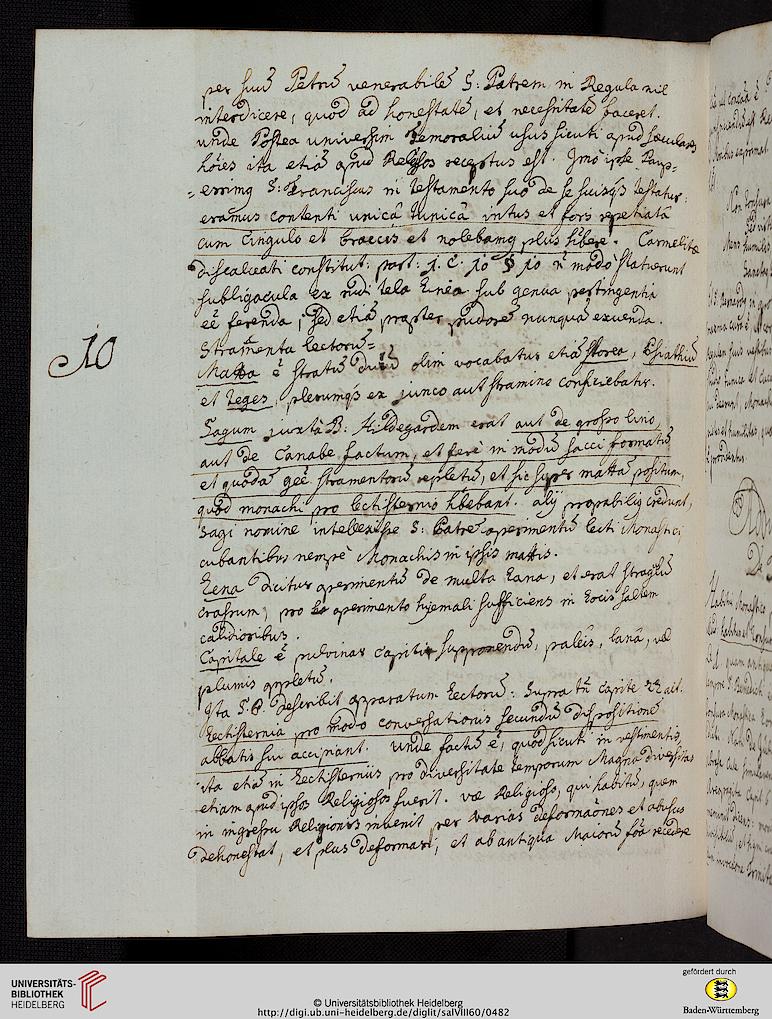 per suū Petrū venerabilē S: Patrem in Regula nil
interdicere, quod ad honestatē, et necessitatē faceret.
unde Postea universim Femoraliū usus sicuti apud sæculares
hōīes ita etiā apud Religsos receptus est. Imo ipse Paup=
=errimq S: Franciscus in testamento suo de se suisqs testatur:
eramus contenti unicâ tunicâ intus et foris repetiatâ
cum Cingulo et braccis et nolebamq plus habere. Carmelitæ
Discalceati constitut: part: 1. c. 10 § 10 n modō statuerunt
subligacula ex rudi tela Linea sub genua pertingentia
eē ferenda, sed etiā propter pudorē nunquā exuenda.
Stram̄enta lectorū=
10
Matta ē stratū durū olim vocabatur etiā storea, Psiathiū
et teges, plerumqs ex junco aut stramine conficiebatur.
Sagum juxta B: Hildegardem erat aut de grosso lino
aut de Canabe factum, et ferè in modū sacci formatū
et quodā geē stramentorū repletū, et sic super mattā positum,
quod monachi pro lectisternio hbebant. alij probabiliq credunt,
Sagi nomine intellexisse S: Patrē operimentū lecti Monastici
cubantibus nempè Monachis in ipsis mattis.
Lena dicitur operimentū de multa Lana, et erat stragulū
crassum, pro operimento hyemali sufficiens in Locis saltem
calidioribus.
Capitale ē pulvinar capiti supponendū, paleis, lanâ, væ
plumis oppletū.
Ita S. P. describit apparatum Lectorū: Supra tn̄ capite 22 ait.
Lectisternia pro modo conversationis secundū dispositionē
abbatis sui accipiant. Unde factū ē, quod sicuti in vestimentis,
ita etiā in Lectisterniis pro diversitate temporum Magna diversitas
etiam apud ipsos Religiosos fuerit. væ Religioso, qui habitū, quem
in ingressu Religionis invenit per varias deformaōnes et abusus
dehonestat, et plus deformari, et ab antiqua Maiorū foā recedere
UNIVERSITÄTS-
BIBLIOTHEK
HEIDELBERG
© Universitätsbibliothek Heidelberg
http://digi.ub.uni-heidelberg.de/diglit/salVIII60/0482
gefördert durch
Baden-Württemberg